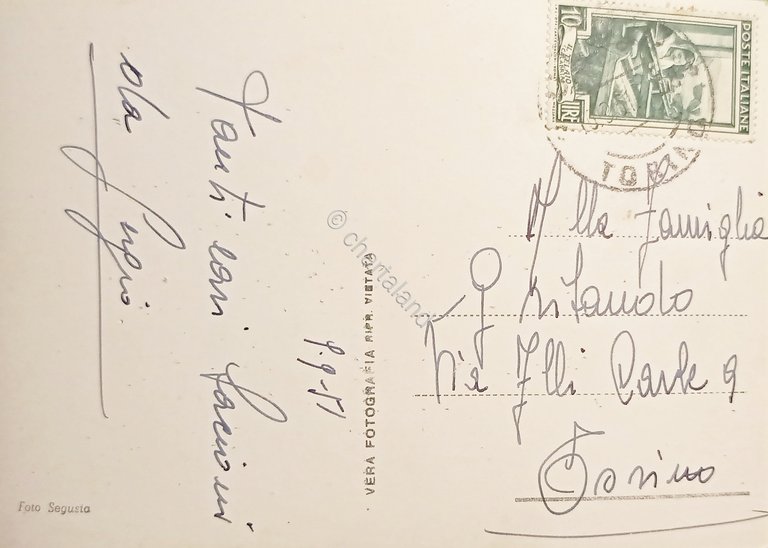 9-9-51
Tanti cari bacioni
da Luigia
Alla Famiglia
Via F.lli Carle 9
Torino
VERA FOTOGRAFIA RIPR. VIETATA
Foto Segusta
POSTE ITALIANE
10 LIRE
TORINO
© chartaland